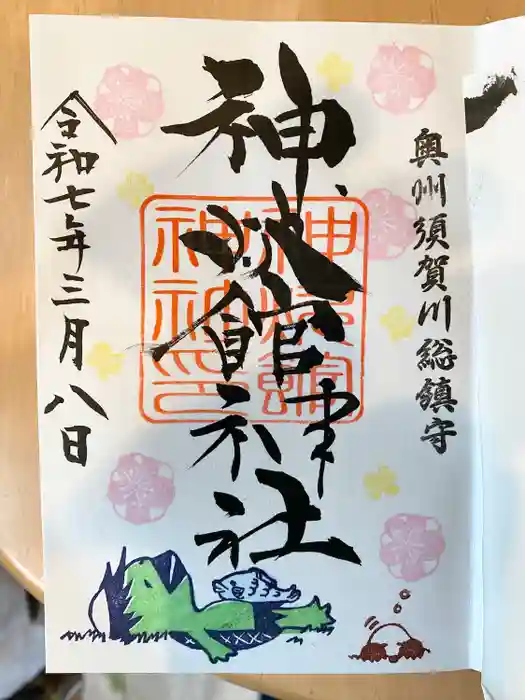 奥州須賀川総鎮守
神炊館神社
神炊館
神社印
令和七年三月八日